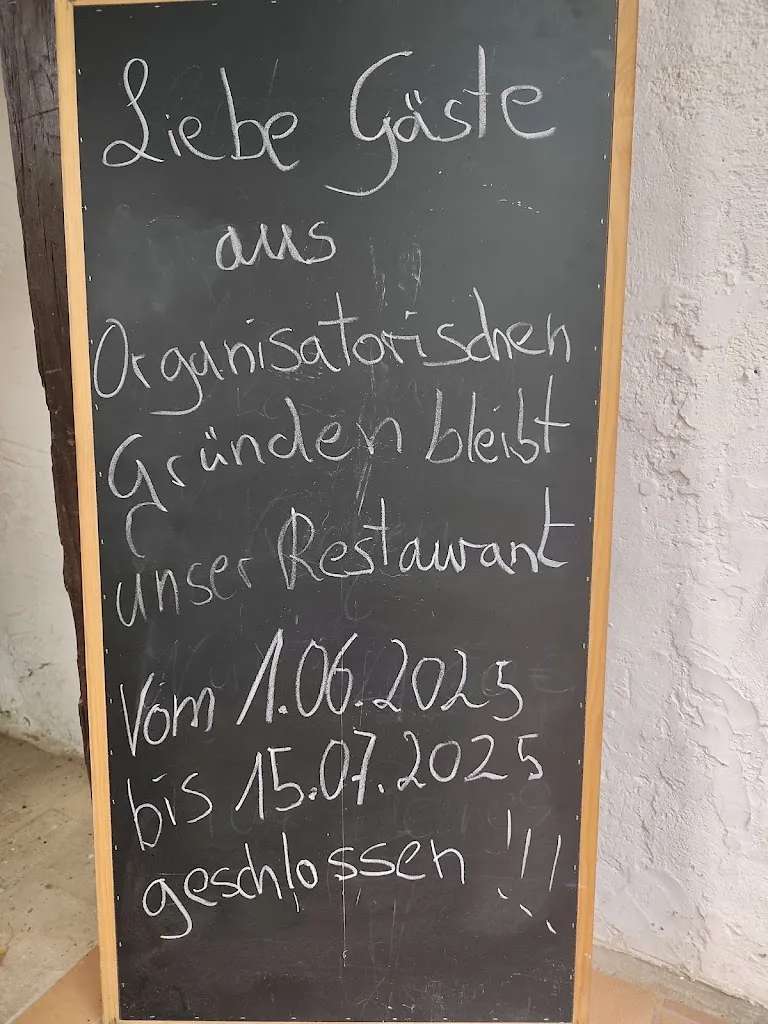 Liebe Gäste
aus
Organisatorischen
Gründen bleibt
unser Restaurant
Vom 1.06.2025
bis 15.07.2025
geschlossen !!!